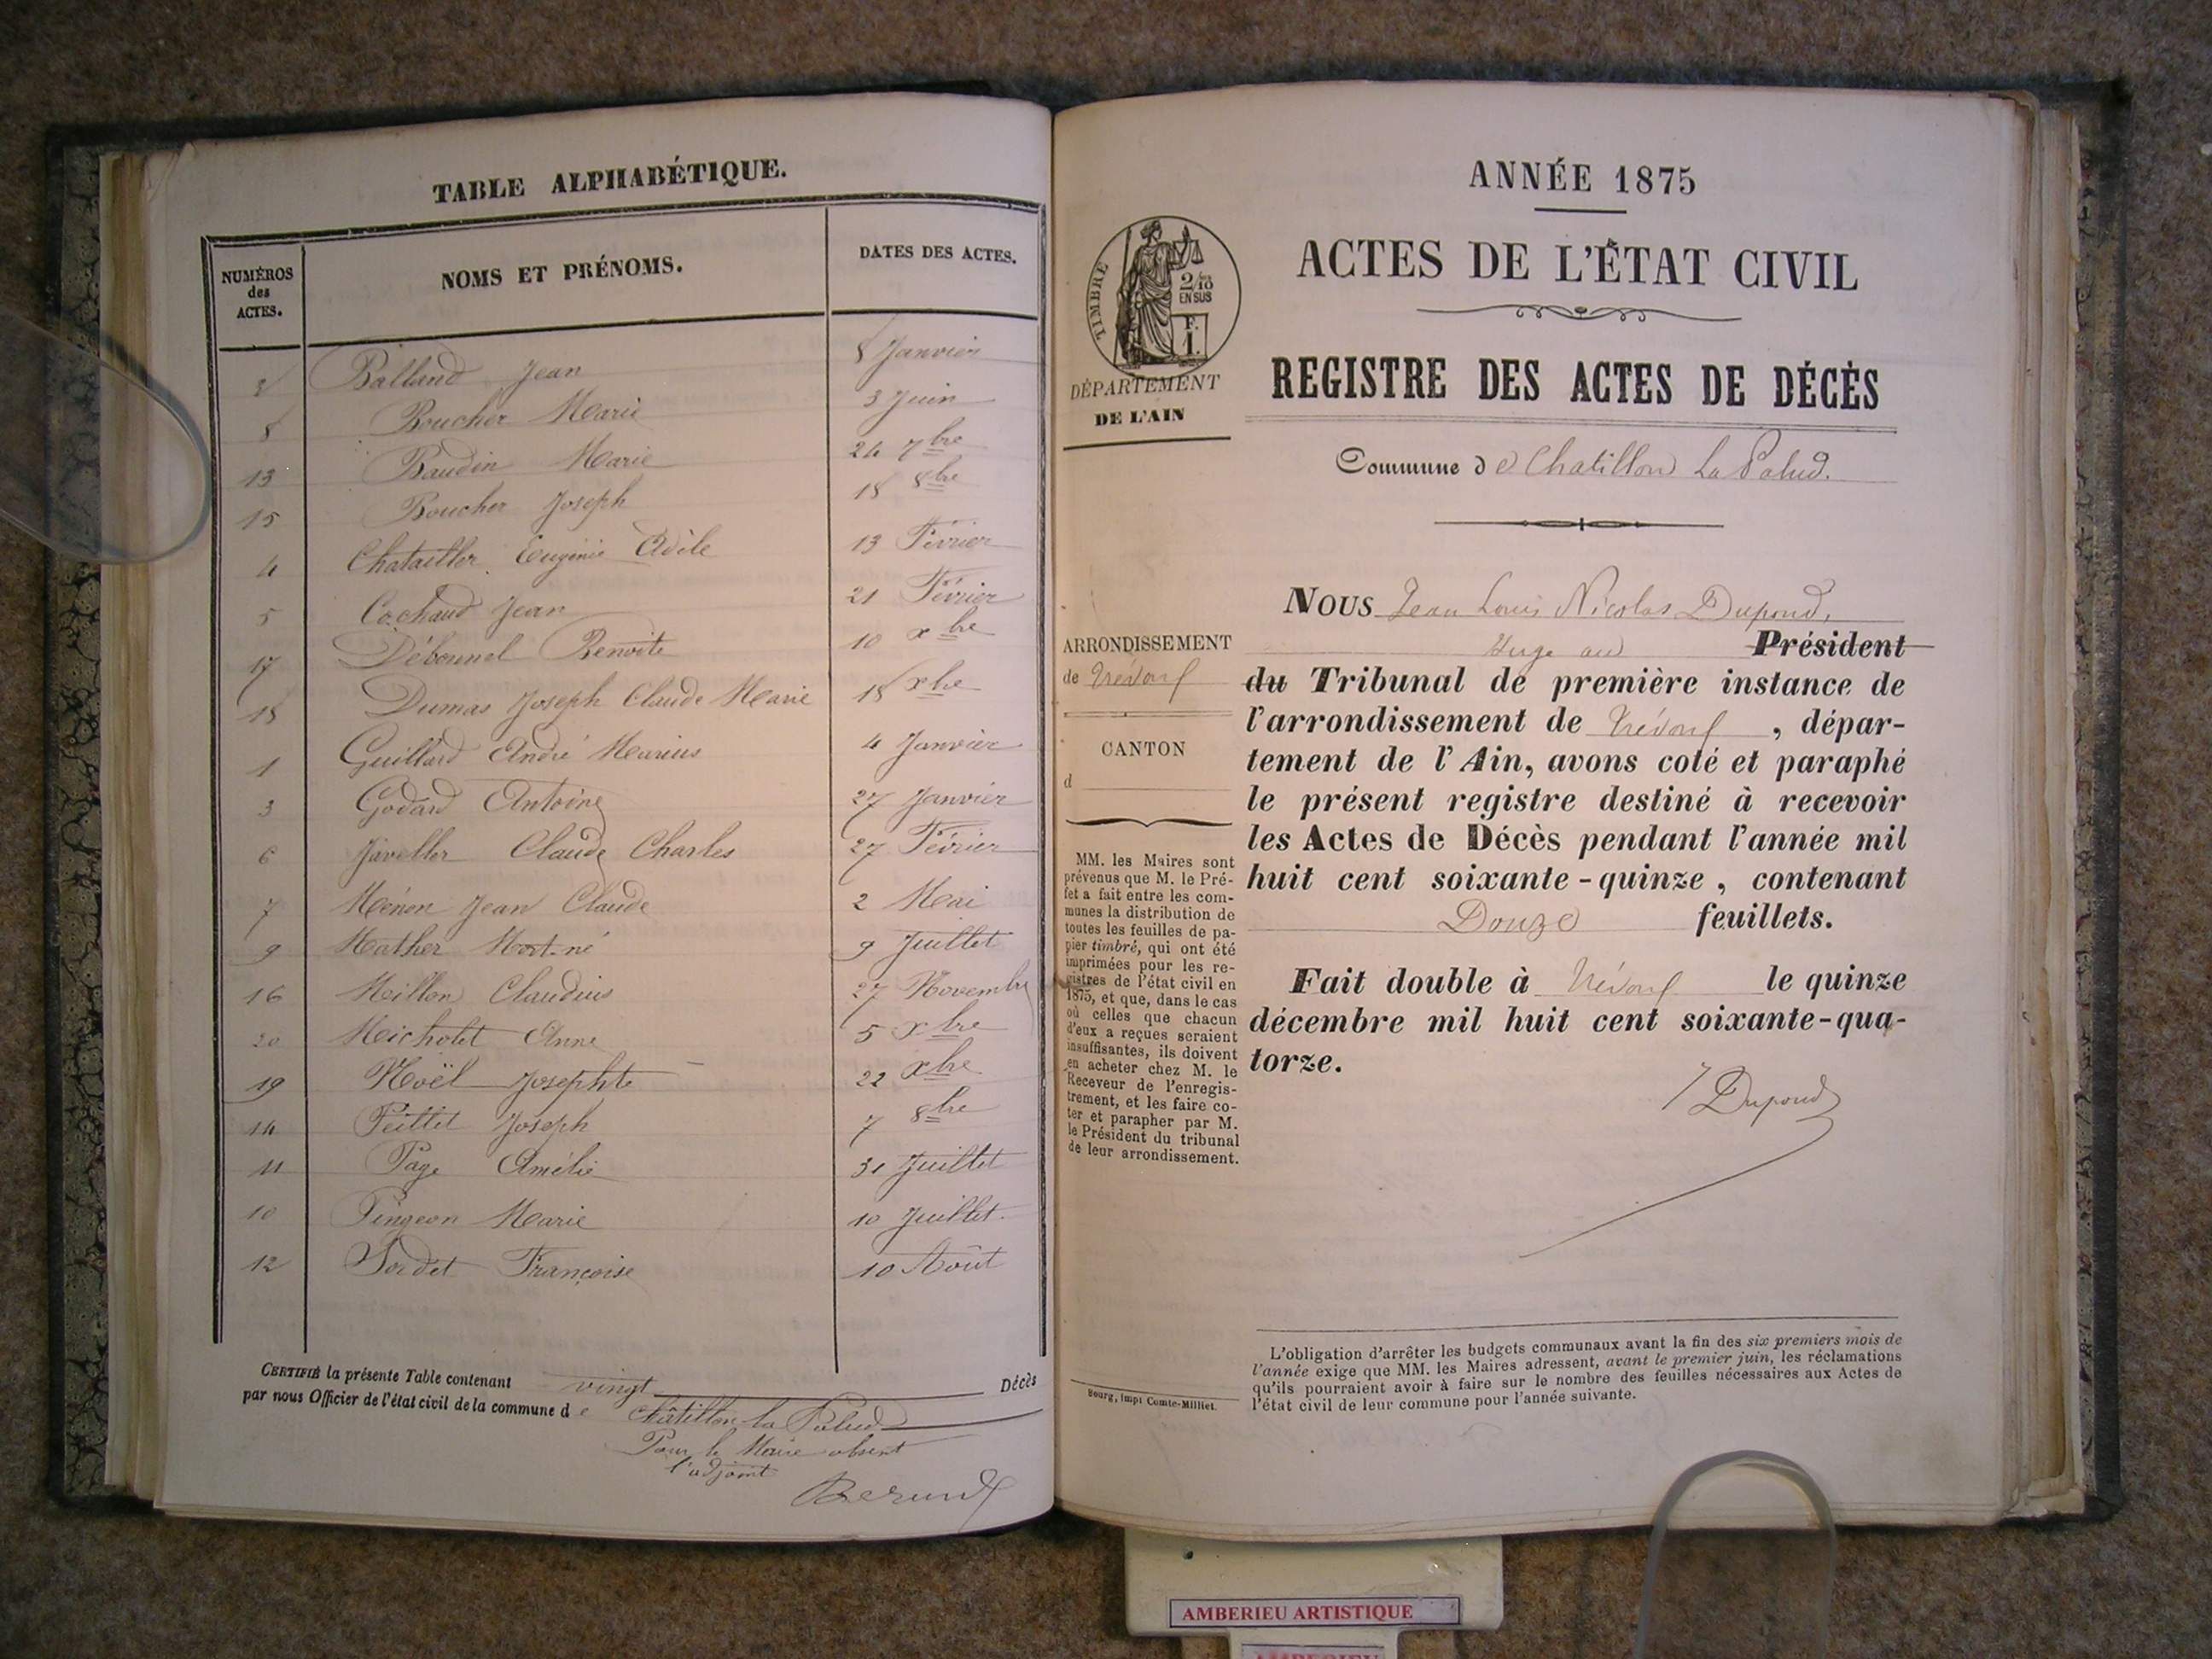 TABLE ALPHABÉTIQUE.
NUMÉROS des ACTES. NOMS ET PRÉNOMS. DATES DES ACTES.
2 Balland Jean 8 Janvier
8 Boucher Marie 3 Juin
13 Baudin Marie 24 7bre
15 Boucher Joseph 18 8bre
4 Chatailler Eugénie Adèle 13 Février
5 Cochaud Jean 21 Février
17 Débonnel Benoite 10 xbre
18 Dumas Joseph Claude Marie 18 xbre
1 Guillard André Marius 4 Janvier
3 Godard Antoine 27 Janvier
6 Javeller Claude Charles 27 Février
7 Ménon Jean Claude 2 Mai
9 Mather Mort-né 9 Juillet
16 Millon Claudius 27 Novembre
20 Micholet Anne 5 xbre
19 Noël Josephte 22 xbre
14 Peillet Joseph 7 8bre
11 Page Amélie 31 Juillet
10 Pingeon Marie 10 Juillet
12 Sordet Françoise 10 Août
CERTIFIÉ la présente Table contenant vingt Décès
par nous Officier de l'état civil de la commune de Châtillon la Palud
Pour le Maire absent
l'adjoint
ANNÉE 1875
ACTES DE L'ÉTAT CIVIL
REGISTRE DES ACTES DE DÉCÈS
Commune de Chatillon La Palud.
TIMBRE
2/10 EN SUS
F. 1.
DÉPARTEMENT
DE L'AIN
ARRONDISSEMENT
de Trévoux
CANTON
d
MM. les Maires sont
prévenus que M. le Pré-
fet a fait entre les com-
munes la distribution de
toutes les feuilles de pa-
pier timbré, qui ont été
imprimées pour les re-
gistres de l'état civil en
1875, et que, dans le cas
où celles que chacun
d'eux a reçues seraient
insuffisantes, ils doivent
en acheter chez M. le
Receveur de l'enregis-
trement, et les faire co-
ter et parapher par M.
le Président du tribunal
de leur arrondissement.
Bourg, Impr Comte-Milliet.
NOUS Jean Louis Nicolas Dupond,
Juge au Président
du Tribunal de première instance de
l'arrondissement de Trévoux, dépar-
tement de l'Ain, avons coté et paraphé
le présent registre destiné à recevoir
les Actes de Décès pendant l'année mil
huit cent soixante-quinze, contenant
Douze feuillets.
Fait double à Trévoux le quinze
décembre mil huit cent soixante-qua-
torze.
Dupond
L'obligation d'arrêter les budgets communaux avant la fin des six premiers mois de
l'année exige que MM. les Maires adressent, avant le premier juin, les réclamations
qu'ils pourraient avoir à faire sur le nombre des feuilles nécessaires aux Actes de
l'état civil de leur commune pour l'année suivante.
AMBERIEU ARTISTIQUE
AMBERIEU